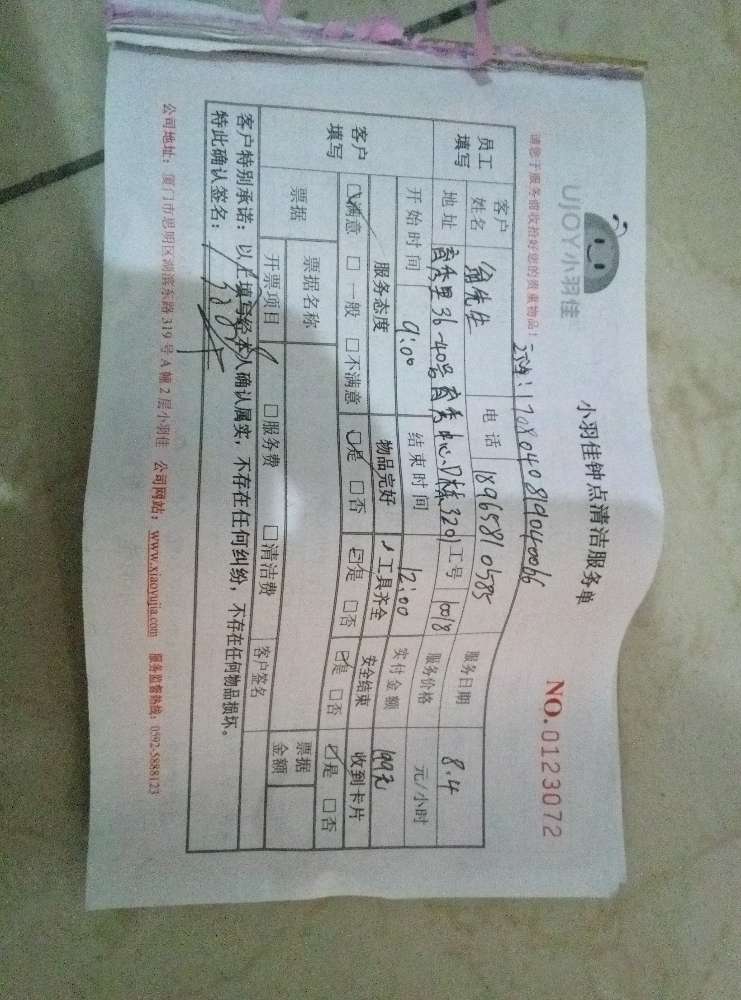 UJOY小羽佳
小羽佳钟点清洁服务单
NO.0123072
请您于服务前收拾好您的贵重物品！
170804081904006
员工填写 客户姓名 翁先生 电话 18965810585 服务日期 8.4
地址 育秀里36-40号育秀中心D栋3201 工号 10018 服务价格 元/小时
开始时间 9:00 结束时间 12:00 实付金额 199元
客户填写 服务态度 物品完好 工具齐全 安全结束 收到卡片
☑满意 □一般 □不满意 ☑是 □否 ☑是 □否 ☑是 □否 ☑是 □否
票据 票据名称 票据金额
开票项目 □服务费 □清洁费 客户签名
客户特别承诺：以上填写经本人确认属实，不存在任何纠纷，不存在任何物品损坏。
特此确认签名：
公司地址：厦门市思明区湖滨东路319号A幢2层小羽佳 公司网站：www.xiaoyujia.com 服务监督热线：0592-5888123